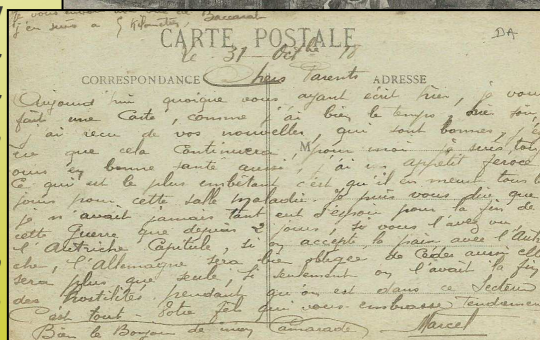 Je vous envoi une vue de Baccarat
j'en suis a 5 Kilomètres,
CARTE POSTALE
DA
le 31 - 8bre 18
CORRESPONDANCE
Chers Parents
ADRESSE
Aujourd'hui quoique vous ayant écrit hier, je vous
fait une Carte, comme j'ai bien le temps,
j'ai recu de vos nouvelles, qui sont bonnes, j'es
M
père que cela continuera pour moi je suis toujours
en bonne santé aussi, j'ai un appétit féroce
Ce qui est le plus embêtant c'est qu'il en meurt tous les
jours pour cette sale maladie. Je puis vous dire que
je n'avait jamais tant eut d'espoir pour la fin de
cette Guerre que depuis 2 jours, si vous l'avez vu
l'Autriche Capitule, si on accepte la paix avec l'Autri
che, l'Allemagne sera bien obligée de Cèdes aussi elle
sera plus que seule, si seulement on l'avait la fin
des hostilités pendant qu'on est dans ce Secteur
C'est tout - Votre fils qui vous embrasse Tendrement
Bien le Bonjour de mon Camarade
Marcel